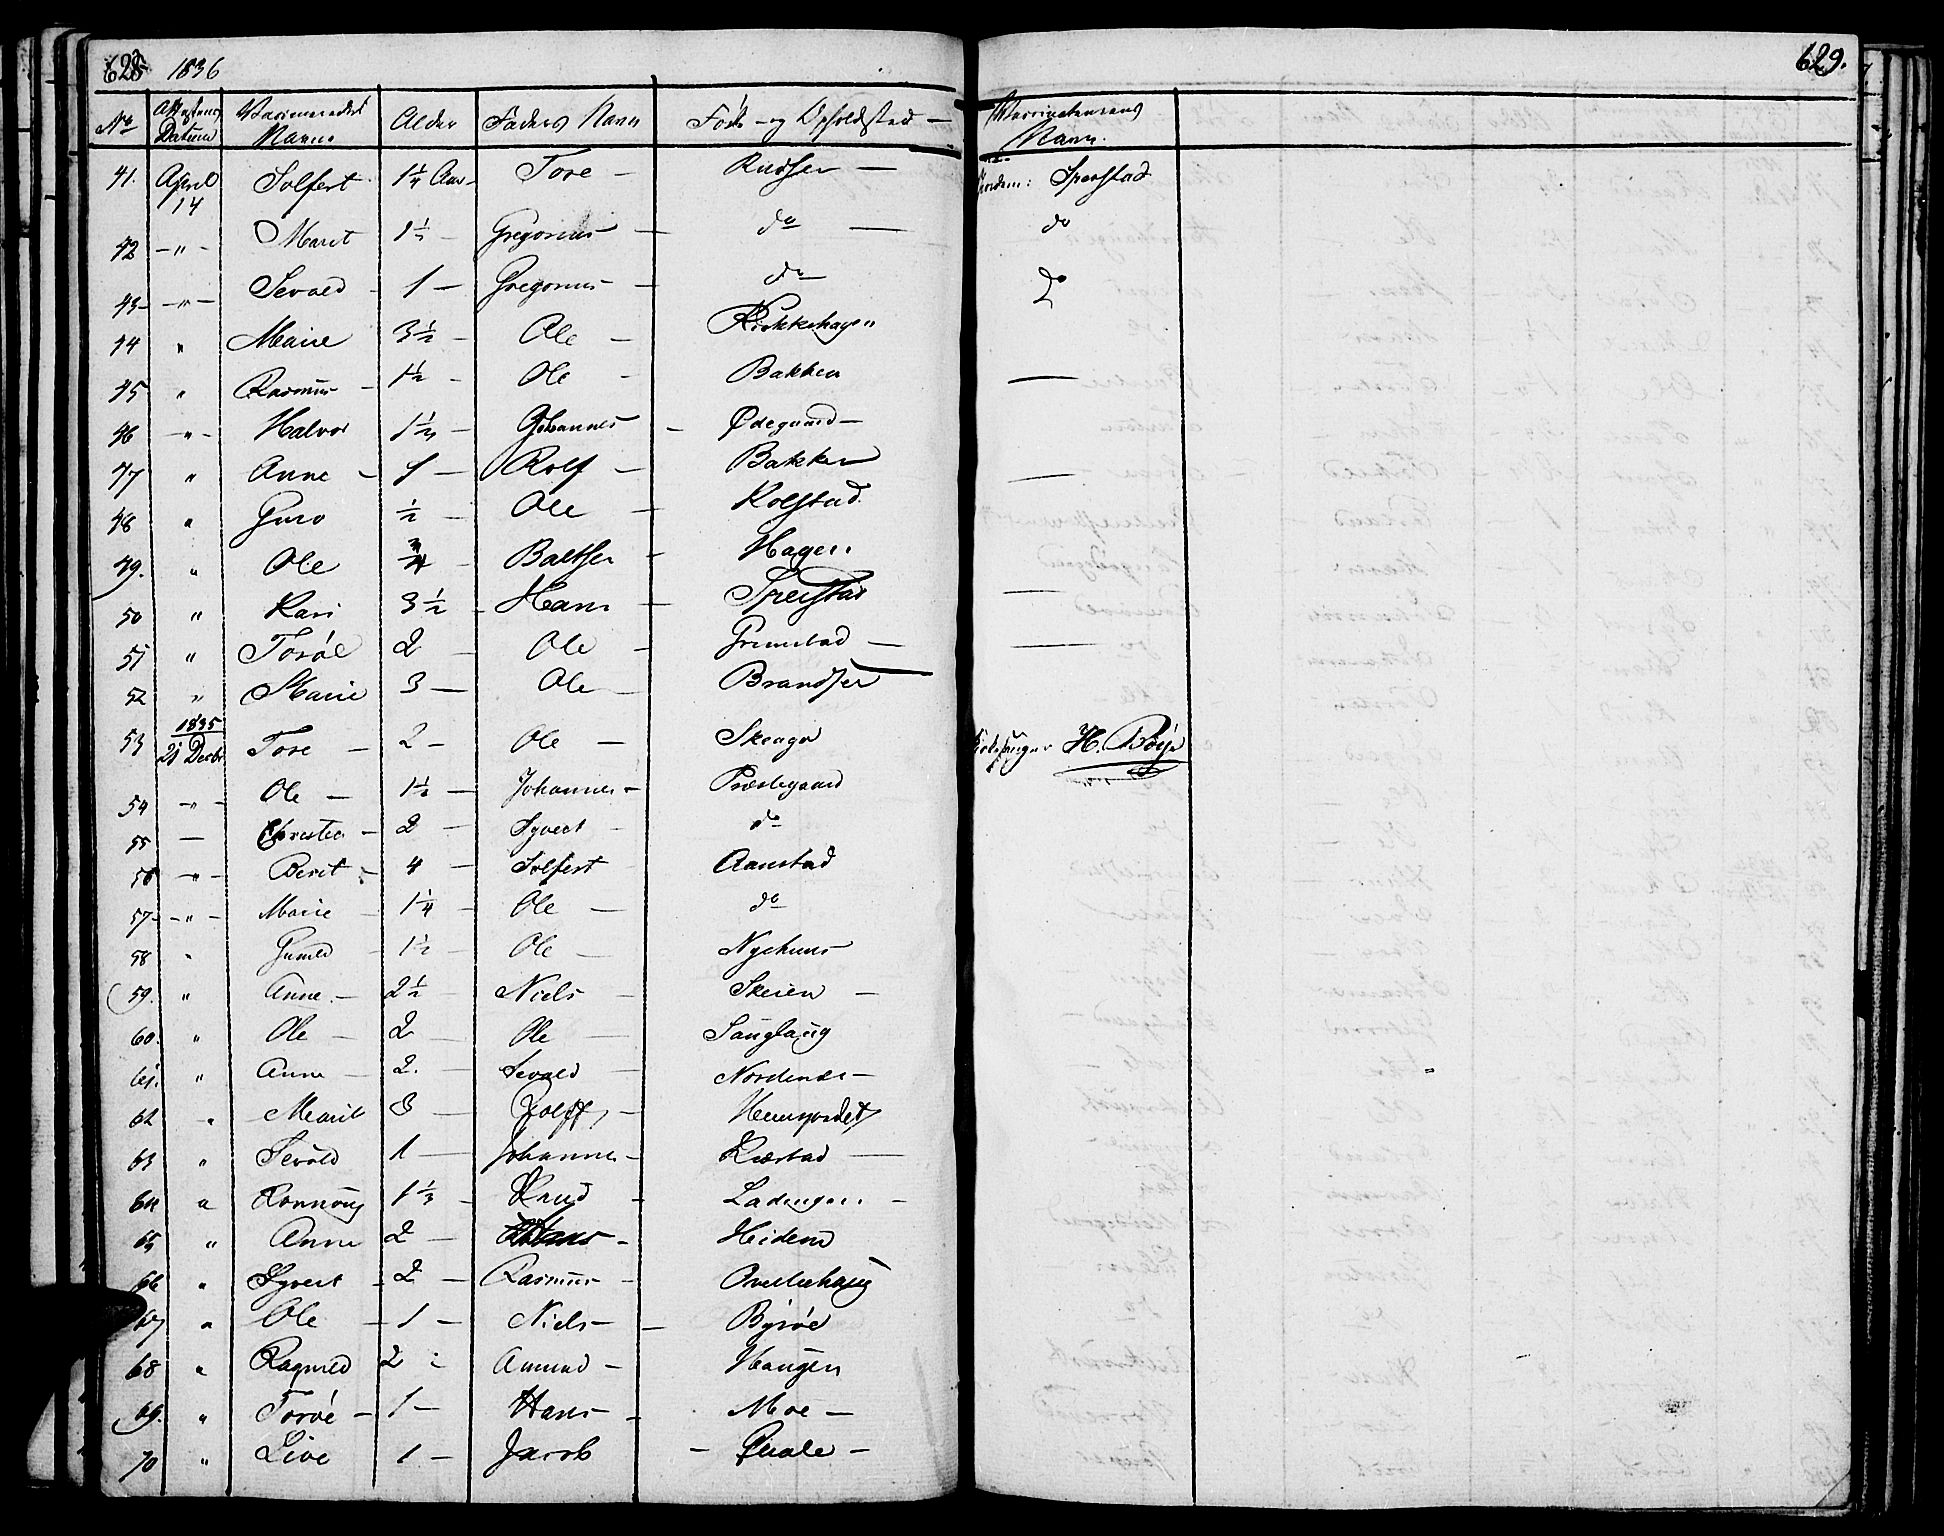 628 1836
629.
No Attestens Datum Vaccineredes Navne Alder Faders Navn Føde- og Opholdsted Vaccinateurens Navn.
41. April 14 Solfest 1 1/4 Aar - Tore - Rudser - Sperstad
42 - " - Marit 1 1/2 - Gregorius - do - do
43 - " - Sevald - 1 - Gregorius - do - do
44 " Marie 3 1/2 - Ole -
45 " Rasmus - 1 1/2 - Ole - Bakken
46 - " - Halvor 1 1/2 - Johannes - Ødegaard -
47 " Anne - 1 - Rolf - Bakken
48 " Guro 1/2 - Ole - Kolstad
49. " Ole 3/4 - Baltser - Hagen
50 " Kari 3 1/2 - Hans - Sperstad
51 " Torøe 2 - Ole - Grimstad -
52 " Marie 3 - Ole - Brandser
53 1835 21 Decbr Tore - 2 - Ole - Skeage Kirkesanger H. Böye
54 - " - Ole - 1 1/2 - Johannes - Præstegaard
55 - Christen - 2 - Syvert - do
56 - " - Berit - 4 - Solfest Aanstad
57 - " - Marie - 1 1/4 - Ole - do
58 " Gunild - 1 1/2 - Ole - Nyehuus
59. " Anne - 2 1/2 - Niels - Skeien -
60. " Ole - 2 - Ole - Sanglaug
61. " Anne - 2. - Sevald - Nordende -
62 " Marit 3 - Rolff -
63 " Sevald 1 - Johannes - Ruestad -
64 " Rønnaug 1 1/3 - Knud - Ladengen -
65 " Anne 2 - Hans - Heidene
66 " Syvert - 2 - Rasmus - Overliehaug
67 " Ole - 1 - Niels - Byrøe
68 " Ragnild 2 - Amund - Haugen
69. " Torøe - 1 - Hans - Moe -
70 " Live 1 - Jacob - Quale -